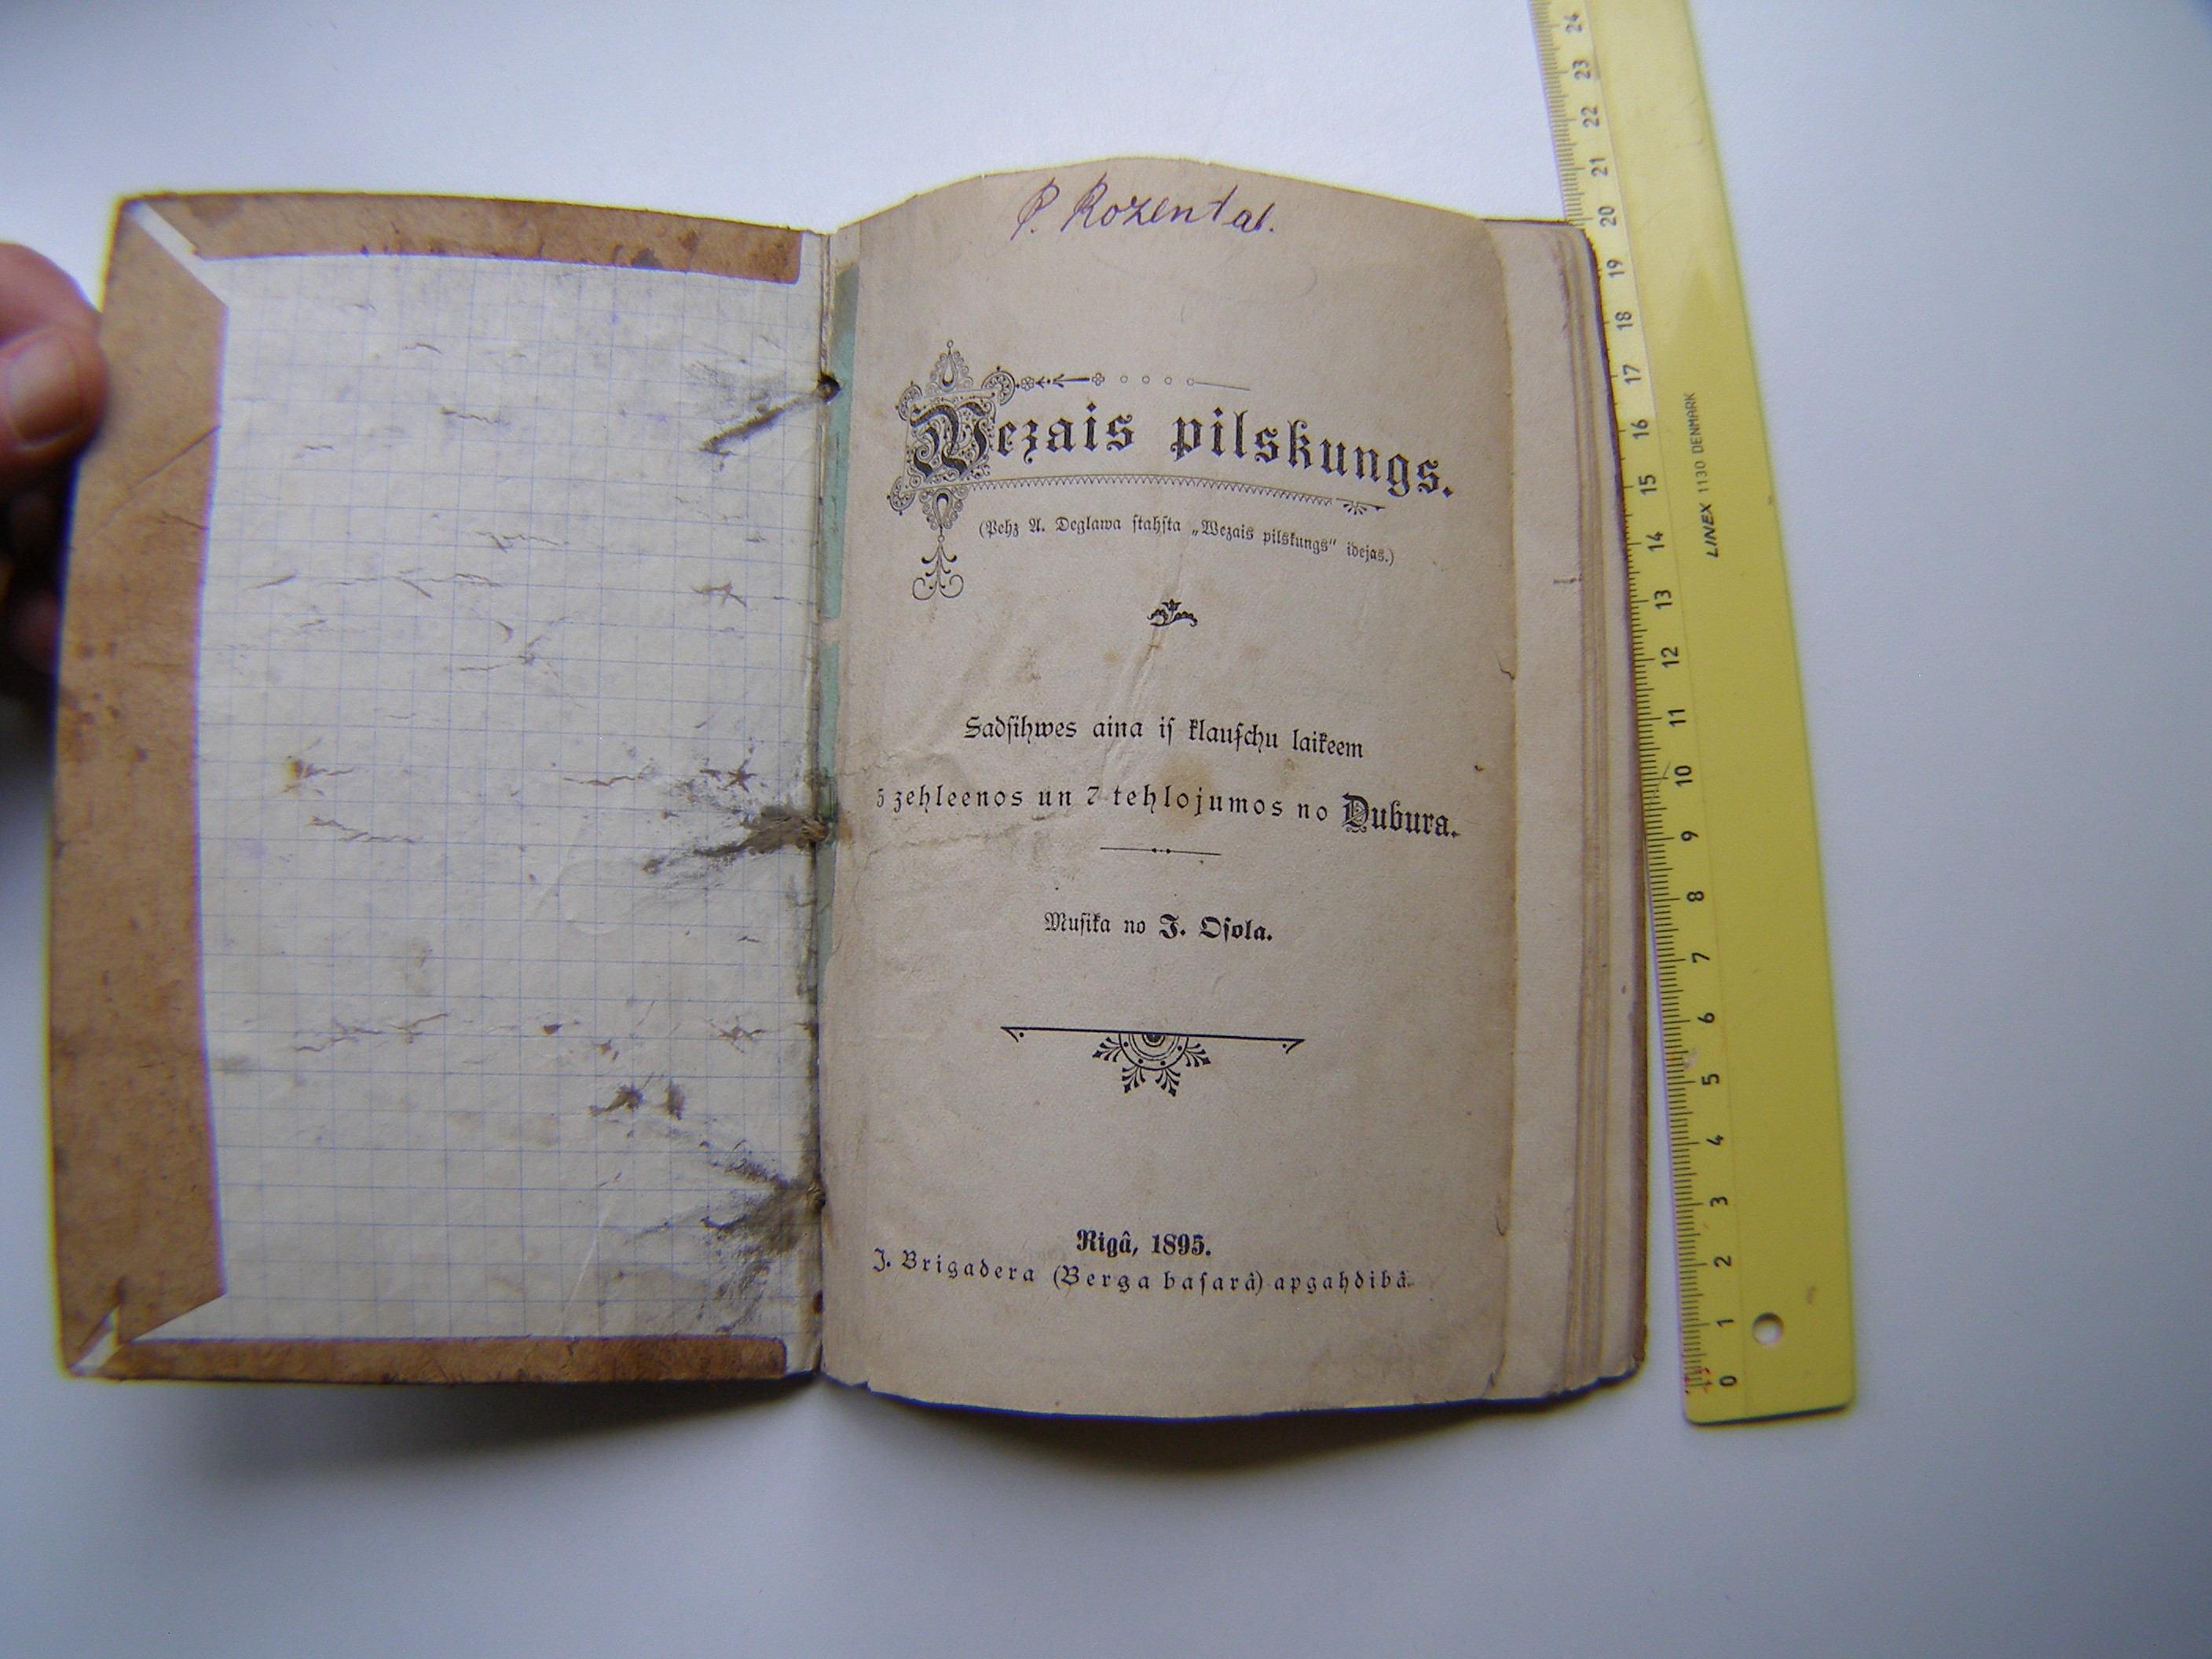 P. Rozental.
Wezais pilskungs.
(Pehz A. Deglawa ſtahſta „Wezais pilskungs“ idejas.)
Sadſihwes aina iſ klauſchu laikeem
5 zehleenos un 7 tehlojumos no Dubura.
Muſika no J. Oſola.
Rigâ, 1895.
J. Brigadera (Berga baſarâ) apgahdibâ.
LINEX 1130 DENMARK
24
23
22
21
20
19
18
17
16
15
14
13
12
11
10
9
8
7
6
5
4
3
2
1
0